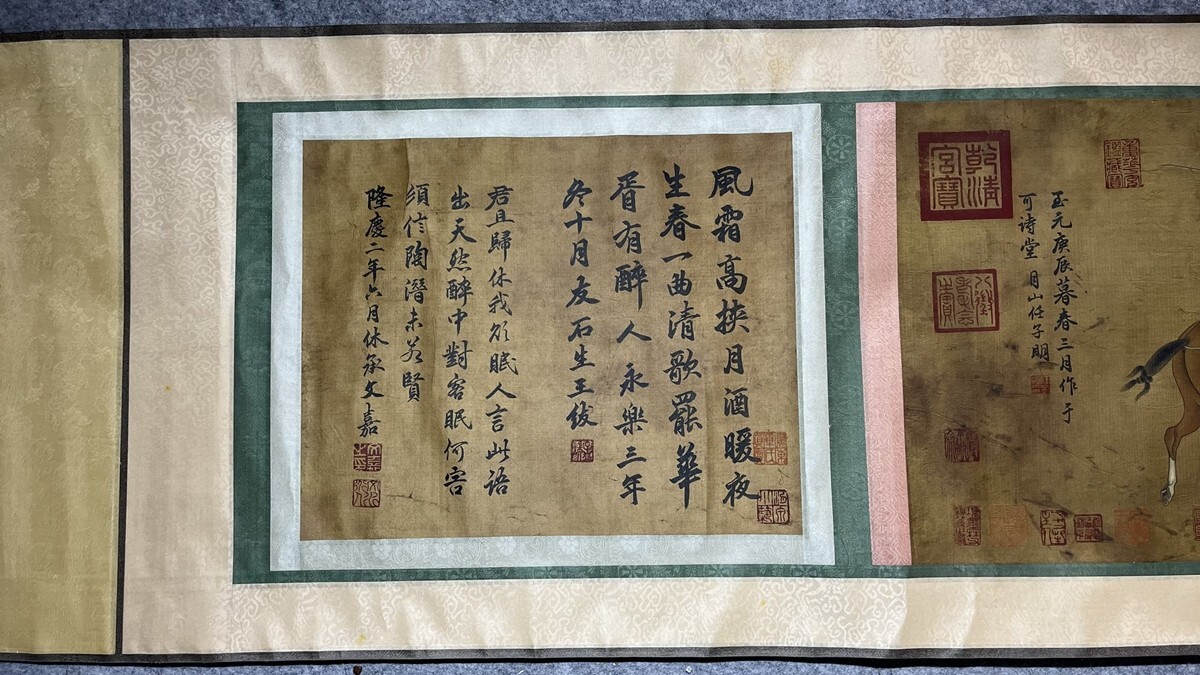 乾清宮寶
至元庚辰暮春三月作于
可诗堂 月山任子明
八徵耄念之寶
風霜高挾月酒暖夜
生春一曲清歌罷華
胥有醉人 永樂三年
冬十月友石生王紱
君且歸休我欲眠人言此語
出天然醉中對客眠何害
須信陶潛未若賢
隆慶二年六月休承文嘉